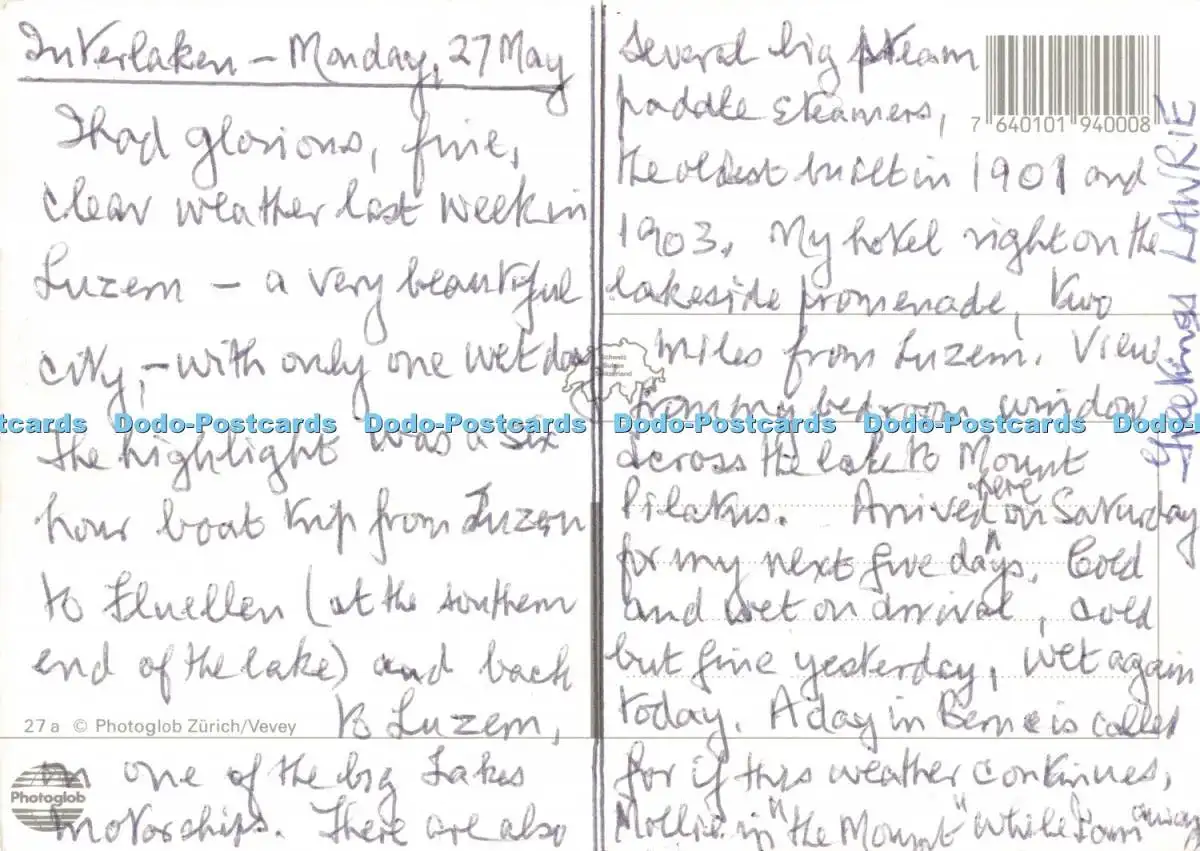 Interlaken – Monday, 27 May
I had glorious, fine,
clear weather last week in
Luzern – a very beautiful
city, – with only one wet day
The highlight was a six
hour boat trip from Luzern
to Fluellen (at the southern
end of the lake) and back
to Luzern,
in one of the big Lakes
motorships. There are also
27 a © Photoglob Zürich/Vevey
Photoglob
Several big steam
paddle steamers,
the oldest built in 1901 and
1903. My hotel right on the
lakeside promenade, two
miles from Luzern. View
from my bedroom window
across the lake to Mount
Pilatus. Arrived here on Saturday
for my next five days. Cold
and wet on arrival, cold
but fine yesterday, wet again
today. A day in Berne is called
for if this weather continues.
Mollie in "the Mount" while I am away
7 640101 940008
Schweiz
Suisse
Switzerland
Greetings LAWRIE
Dodo-Postcards Dodo-Postcards Dodo-Postcards Dodo-Postcards Dodo-Postcards